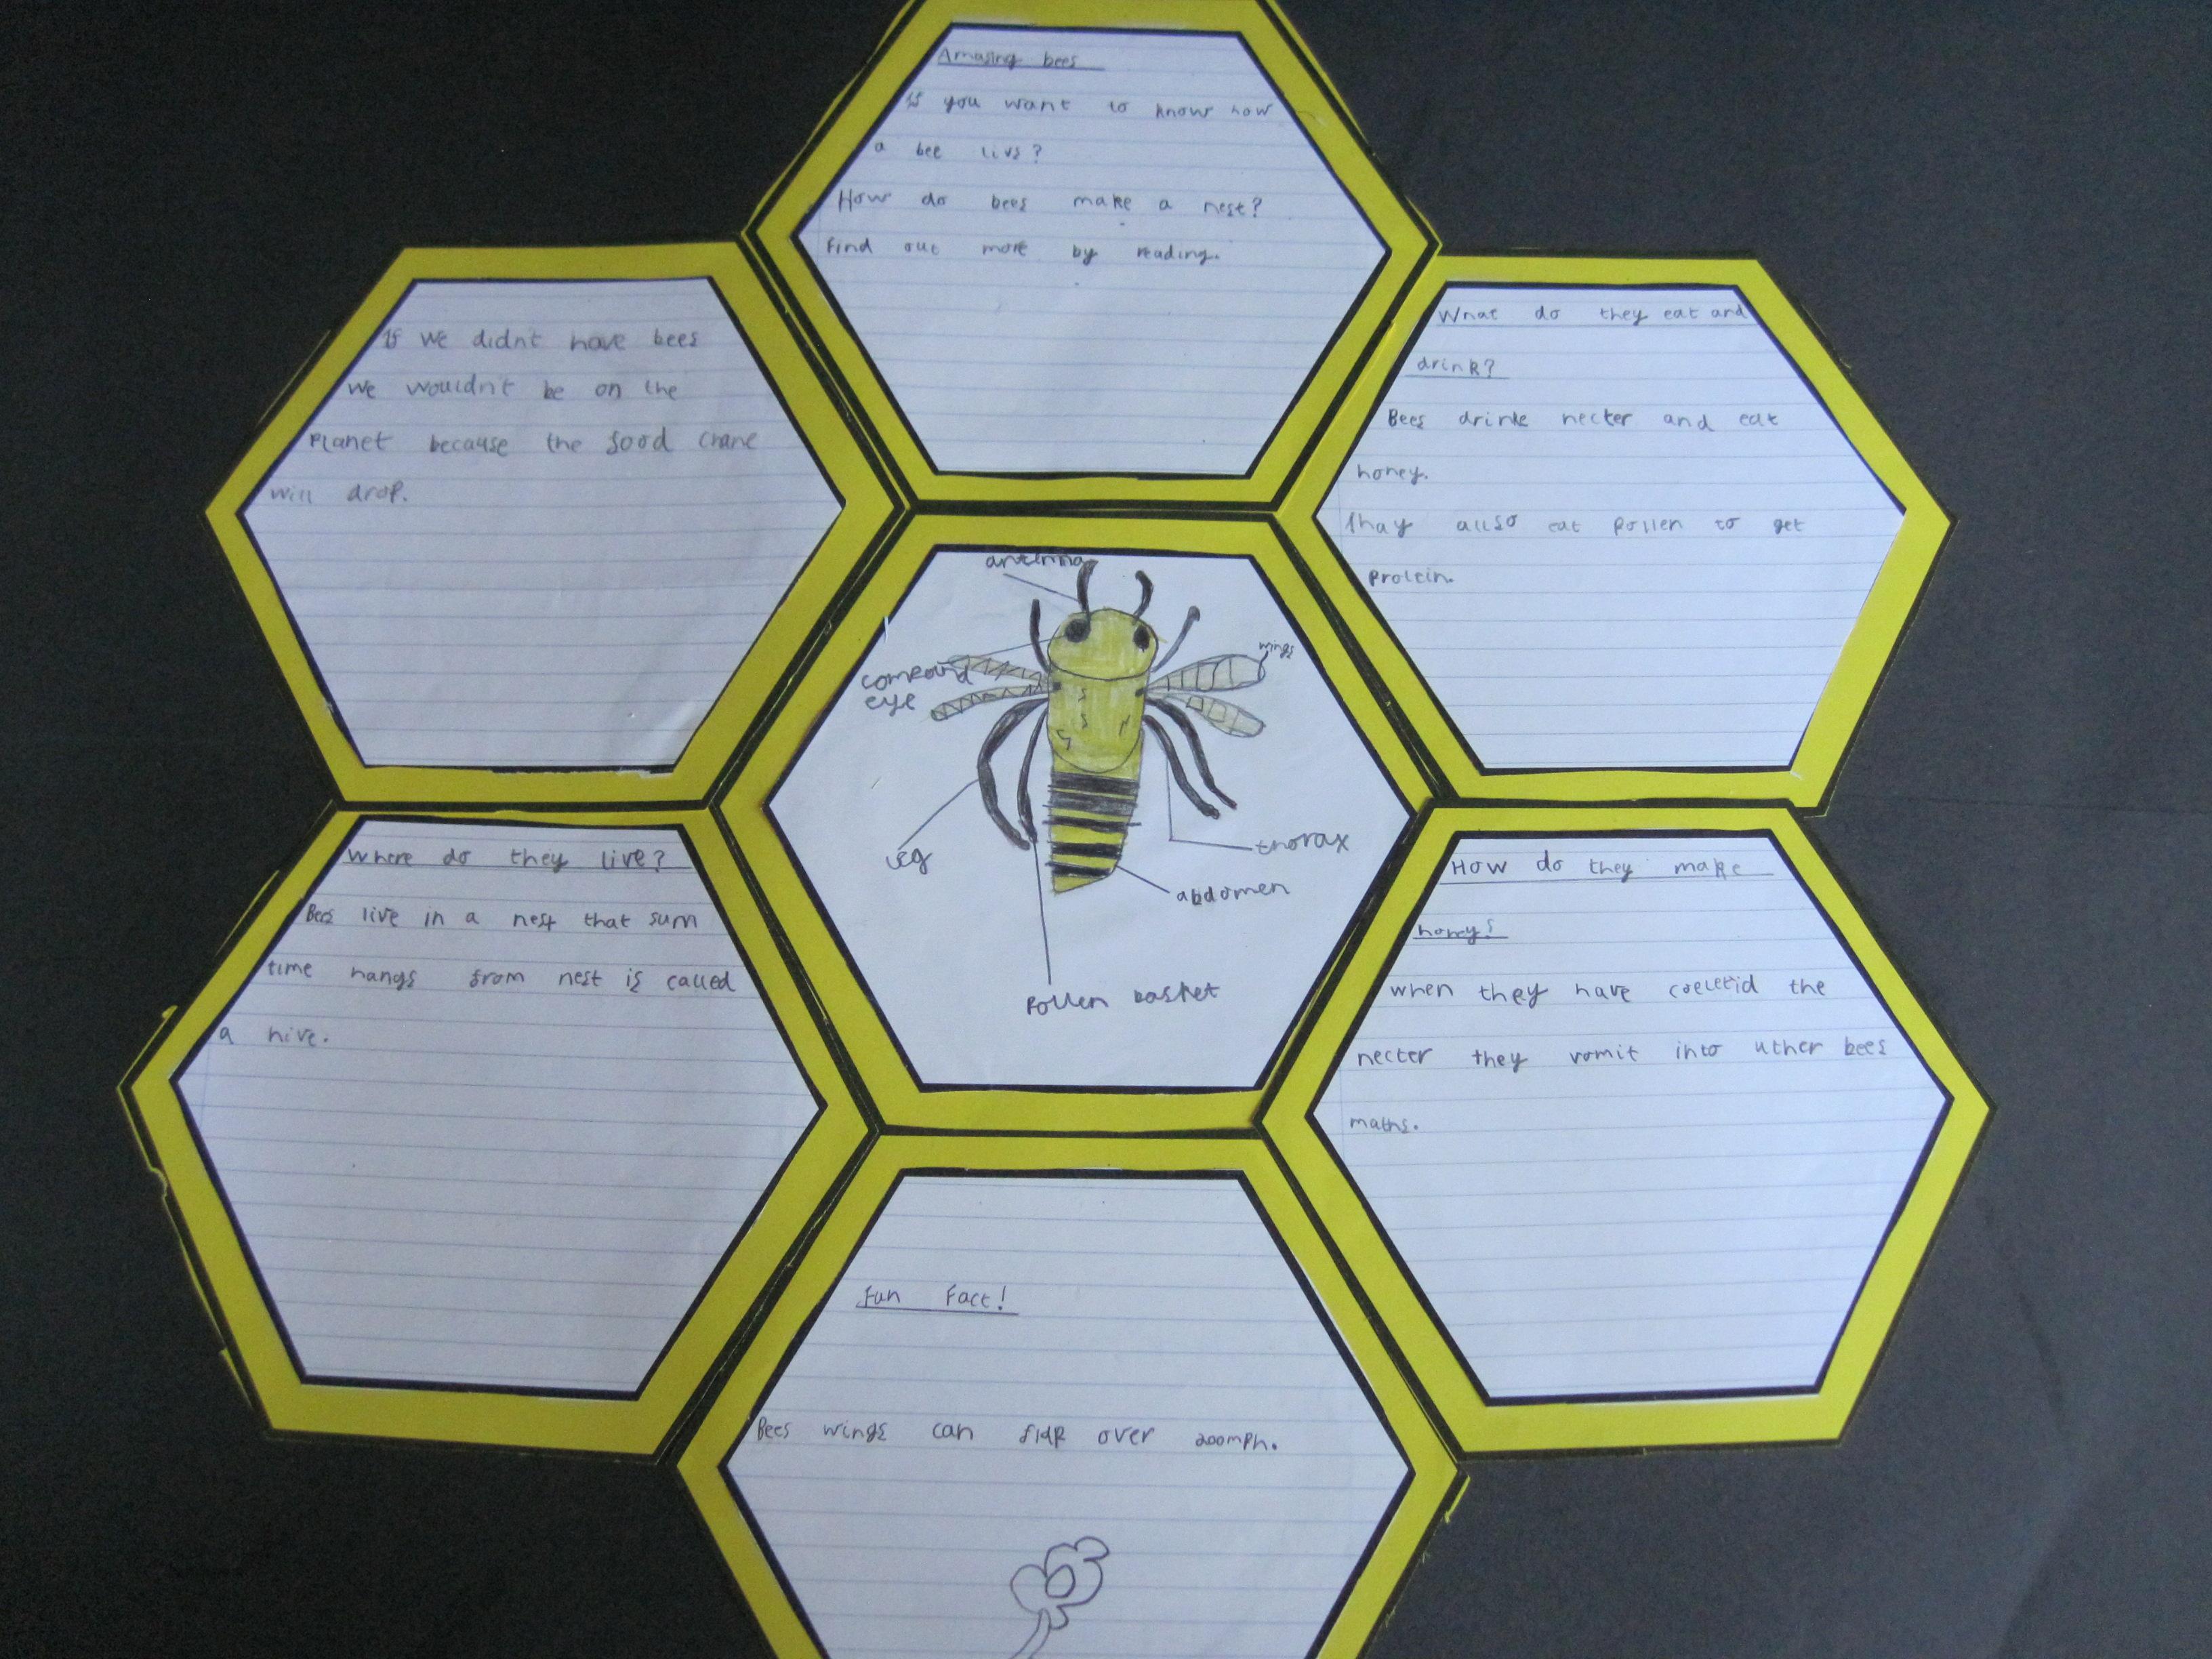 Amazing bees
If you want to know how
a bee livs?
How do bees make a nest?
Find out more by reading.
If we didnt have bees
we wouldn't be on the
Planet because the food chane
will drop.
What do they eat and
drink?
Bees drink necter and eat
honey.
thay allso eat pollen to get
protein.
antenna
compound
eye
wings
leg
thorax
abdomen
Pollen basket
Where do they live?
Bees live in a nest that sum
time hangs from nest is called
a hive.
How do they make
honey?
when they have the
necter they vomit into uther bees
maths.
fun Fact!
Bees wings can flap over 200mph.